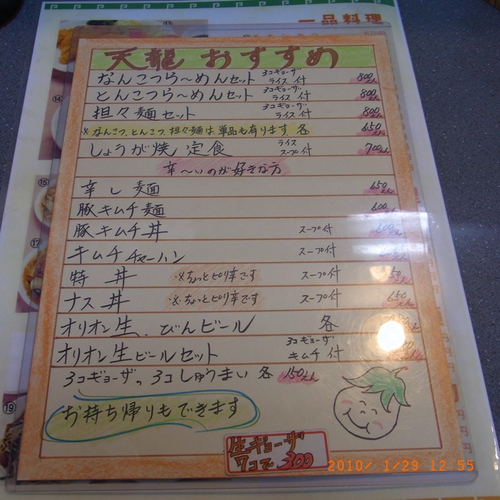 一品料理
天龍 おすすめ
なんこつら〜めんセット 3コギョーザ ライス付 800えん
とんこつら〜めんセット 3コギョーザ ライス付 800えん
担々麺セット 3コギョーザ ライス付 800えん
※なんこつ、とんこつ、担々麺は単品も有ります 各 650えん
しょうが焼定食 ライス スープ付 700えん
辛〜いのが好きな方
辛し麺 650えん
豚キムチ麺 600えん
豚キムチ丼 スープ付
キムチチャーハン スープ付
特丼 ※ちょっとピリ辛です スープ付
ナス丼 ※ちょっとピリ辛です スープ付 650
オリオン生、びんビール 各
オリオン生ビールセット 3コギョーザ キムチ付
3コギョーザ、3コしゅうまい 各 150えん
お持ち帰りもできます
生ギョーザ
7コで300
2010/ 1/29 12:55
⑭
⑮
⑰
⑲